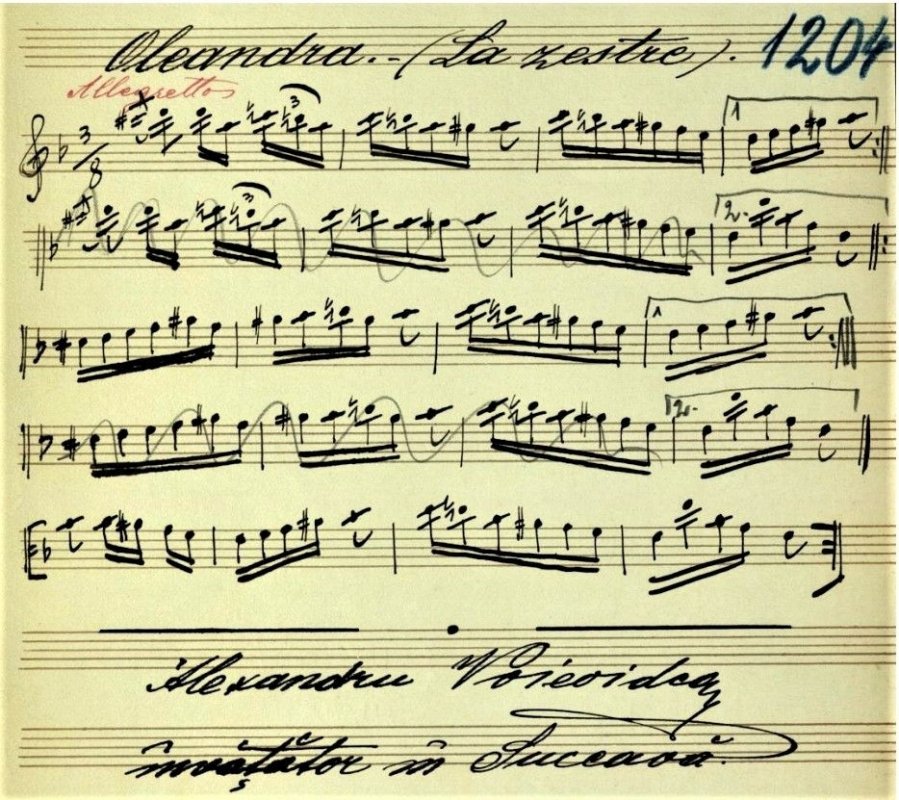 Oleandra.-(La zestre). 1204
Allegretto
3/8
3
1
3
2.
1
2.
Alexandru Voievidca
învățător în Suceava.